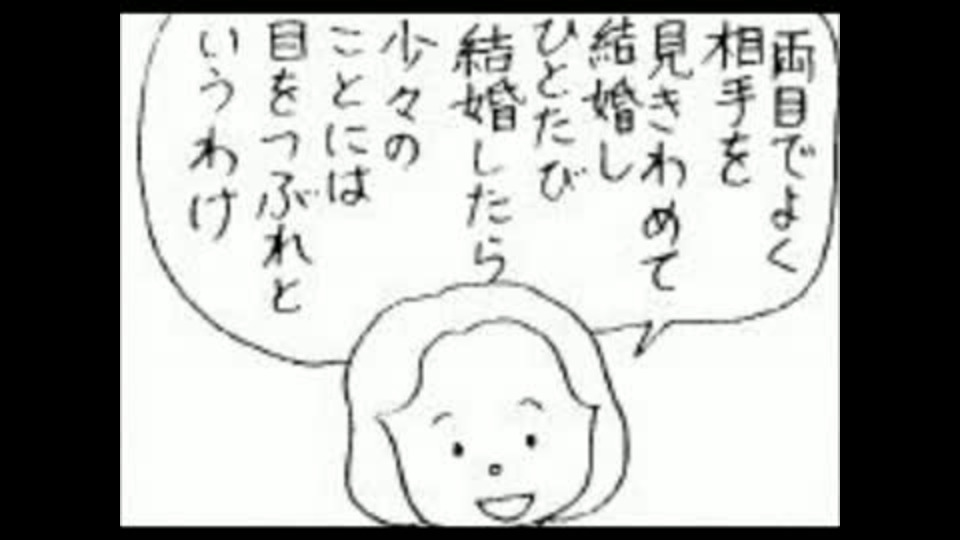 両目でよく
相手を
見きわめて
結婚し
ひとたび
結婚したら
少々の
ことには
目をつぶれと
いうわけ